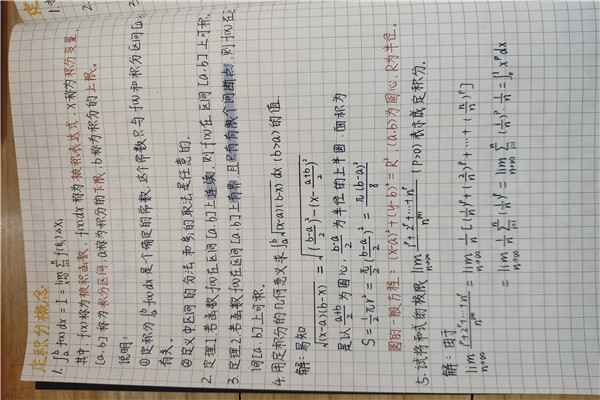 定积分概念
1. ∫ₐᵇ f(x)dx = I = lim_{λ→0} Σ_{i=1}^{n} f(ξᵢ)Δxᵢ
其中: f(x)称为被积函数, f(x)dx称为被积表达式, x称为积分变量,
[a,b]称为积分区间, a称为积分的下限, b称为积分的上限。
说明:
①定积分∫ₐᵇ f(x)dx是个确定的常数, 这个常数只与f(x)和积分区间[a,
有关。
②定义中区间的分法和ξᵢ的取法是任意的。
2. 定理1. 若函数f(x)在区间[a,b]上连续, 则f(x)在区间[a,b]上可积.
3. 定理2. 若函数f(x)在区间[a,b]上有界, 且只有有限个间断点, 则f(x)在
间[a,b]上可积。
4. 用定积分的几何意义求∫ₐᵇ√((x-a)(b-x)) dx (b>a)的值.
解: 易知
√((x-a)(b-x)) = √(((b-a)/2)² - (x - (a+b)/2)²)
是以(a+b)/2为圆心, (b-a)/2为半径的上半圆, 面积为
S = ½πr² = π/2((b-a)/2)² = π(b-a)²/8
圆的一般方程: (x-a)²+(y-b)²=R², (a,b)为圆心, R为半径。
5. 试将和式的极限 lim_{n→∞} (1ᵖ+2ᵖ+…+nᵖ)/nᵖ⁺¹ (P>0) 表示成定积分。
解: 由于
lim_{n→∞} (1ᵖ+2ᵖ+…+nᵖ)/nᵖ⁺¹ = lim_{n→∞} 1/n[(1/n)ᵖ+(2/n)ᵖ+…+(n/n)ᵖ]
= lim_{n→∞} 1/n Σ_{i=1}^{n} (i/n)ᵖ = lim_{n→∞} Σ_{i=1}^{n} (i/n)ᵖ 1/n = ∫₀¹ xᵖ dx